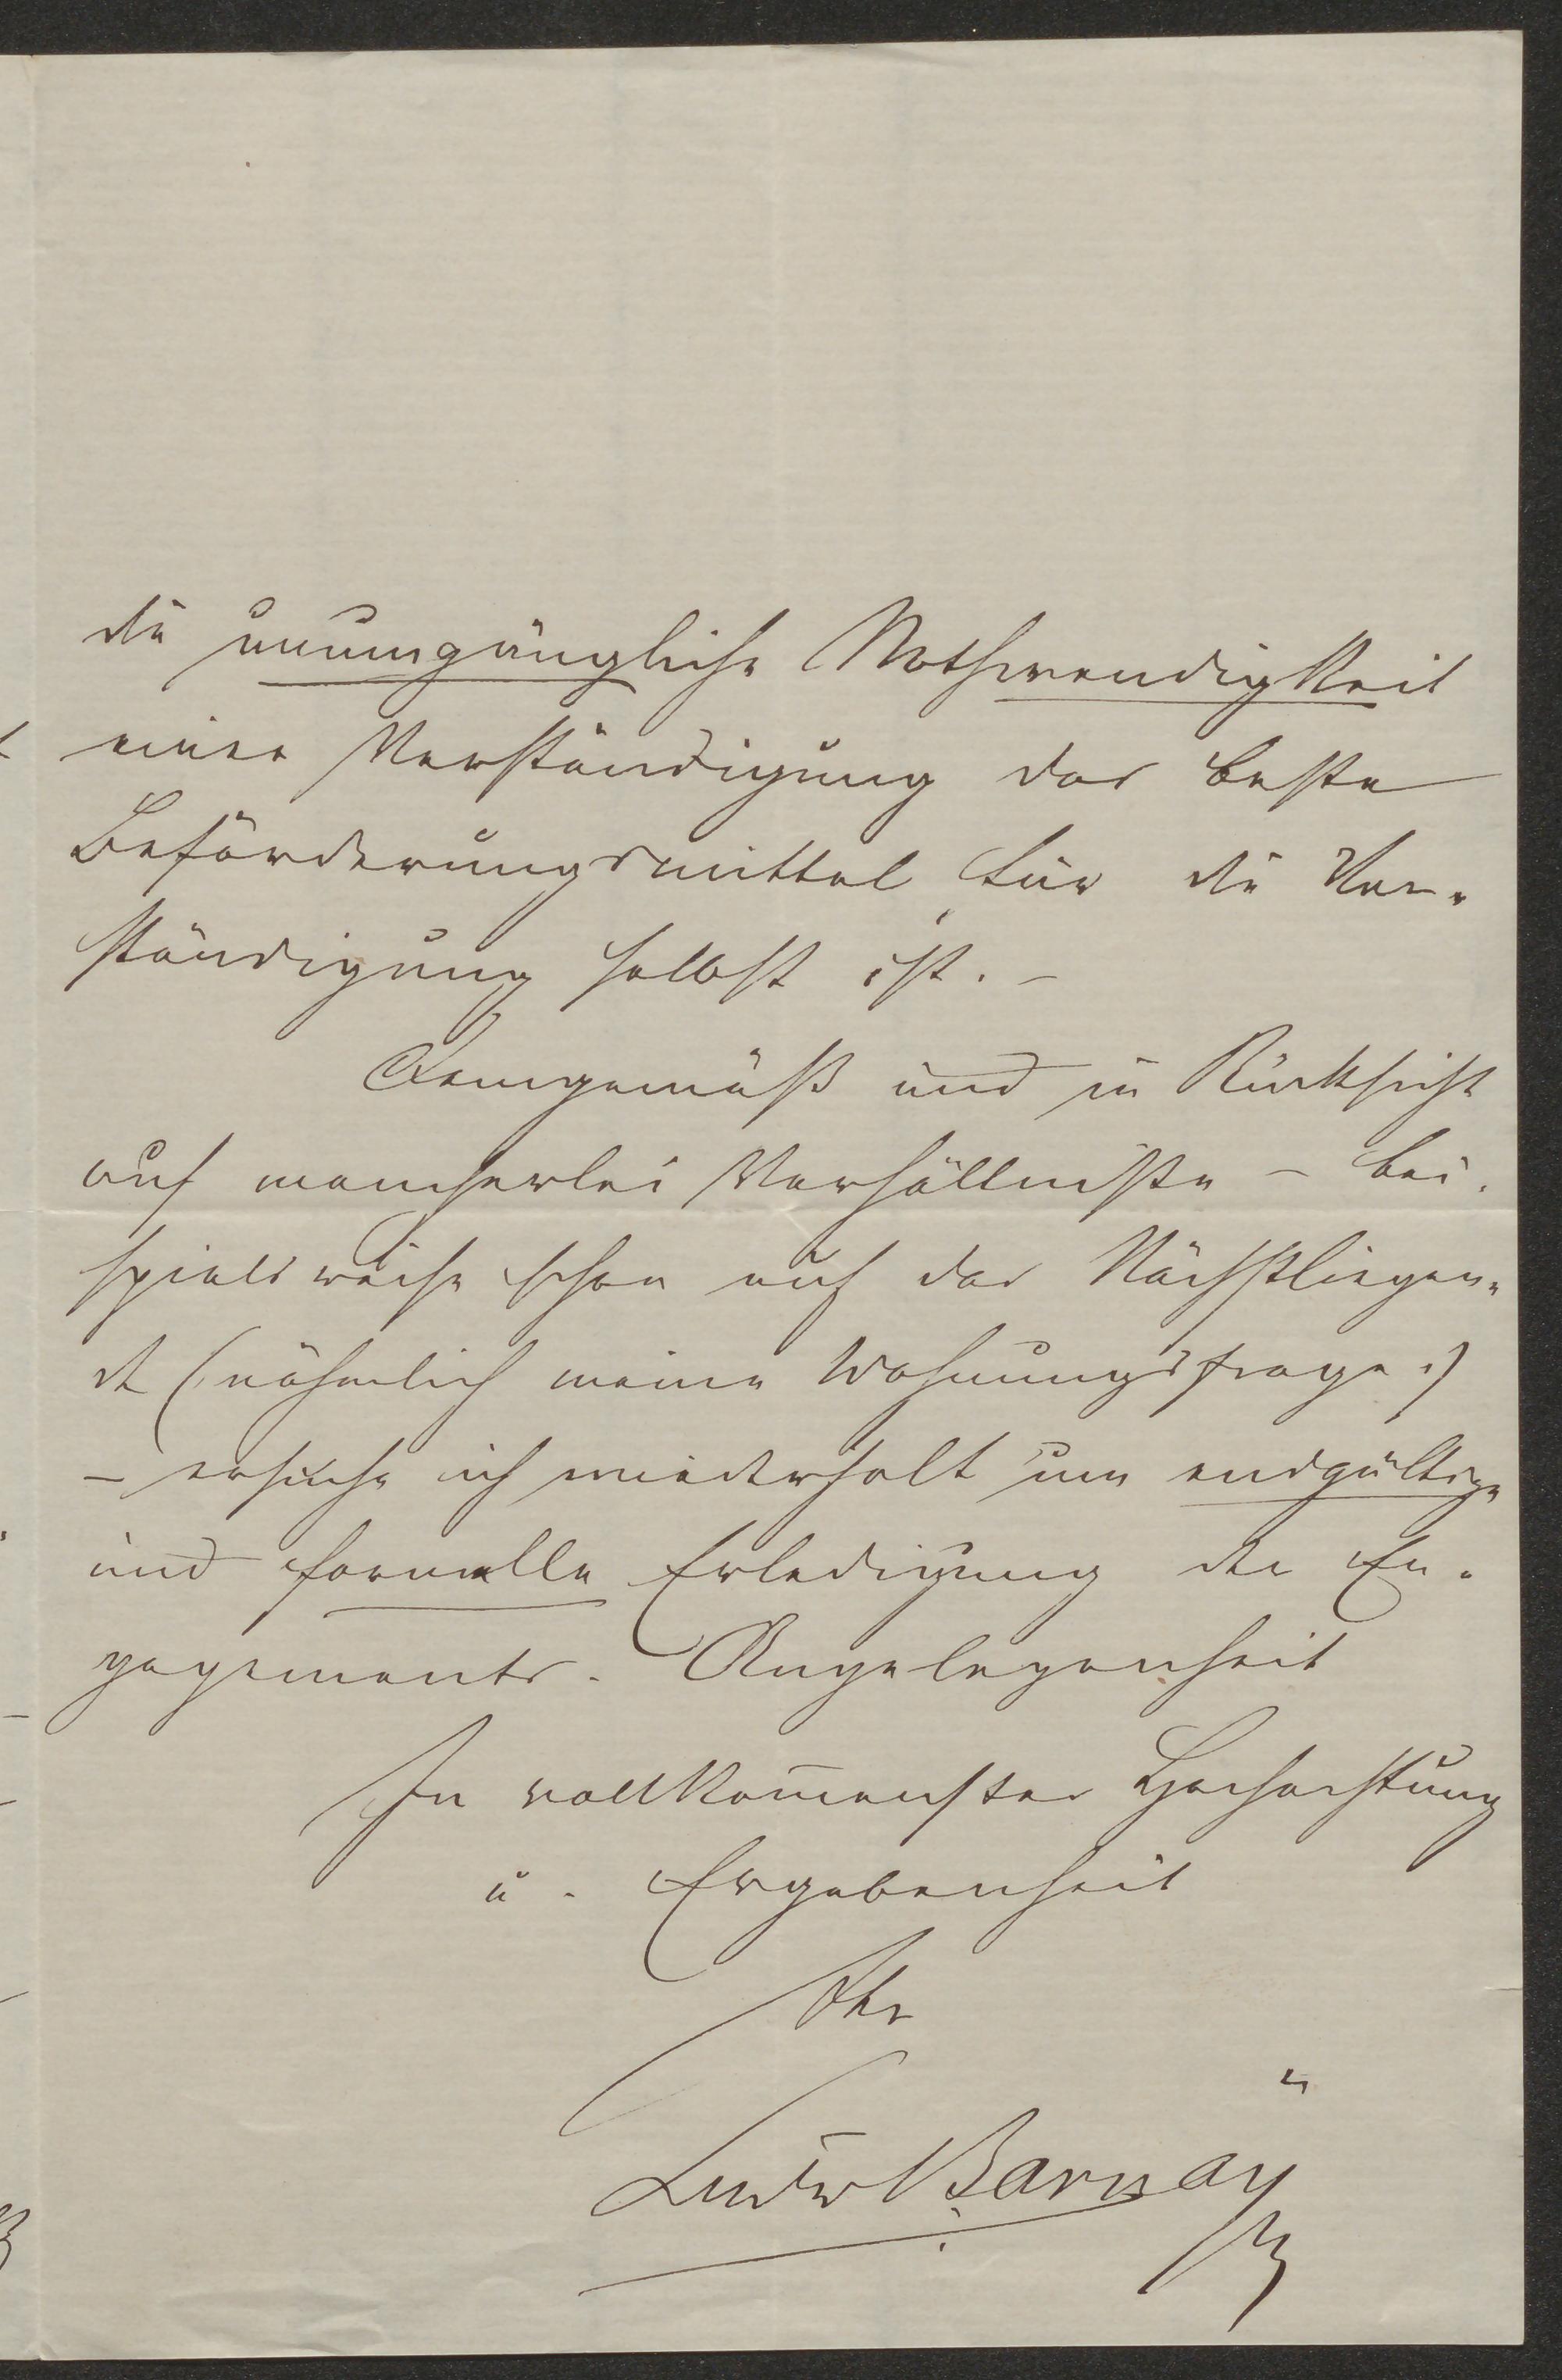 die unumgängliche Nothwendigkeit
einer Verständigung das beste
Beförderungsmittel für die Ver-
ständigung selbst ist. -
Demgemäß und in Rücksicht
auf mancherlei Verhältnisse - bei-
spielsweise schon auf das Nächstliegen-
de (nähmlich meine Wohnungsfrage!)
- ersuche ich wiederholt um endgültige
und formelle Erledigung der En-
gagements-Angelegenheit
In vollkom̄enster Hochachtung
u. Ergebenheit
Ihr
Ludw Barnay